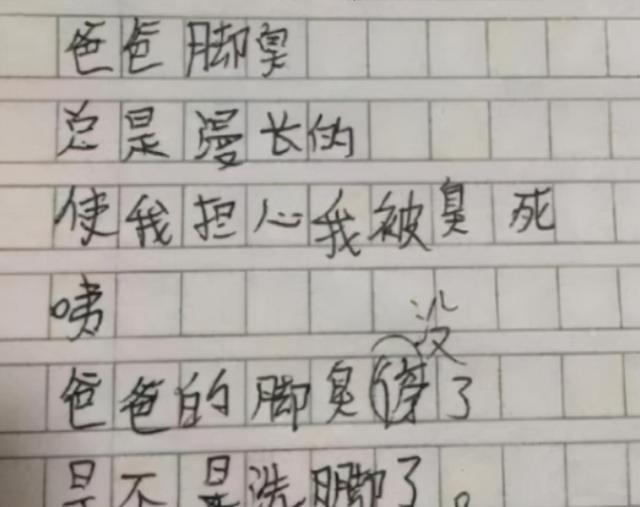 爸爸脚臭
总是漫长的
使我担心我被臭死
咦
没
爸爸的脚臭停了
是不是洗脚了。